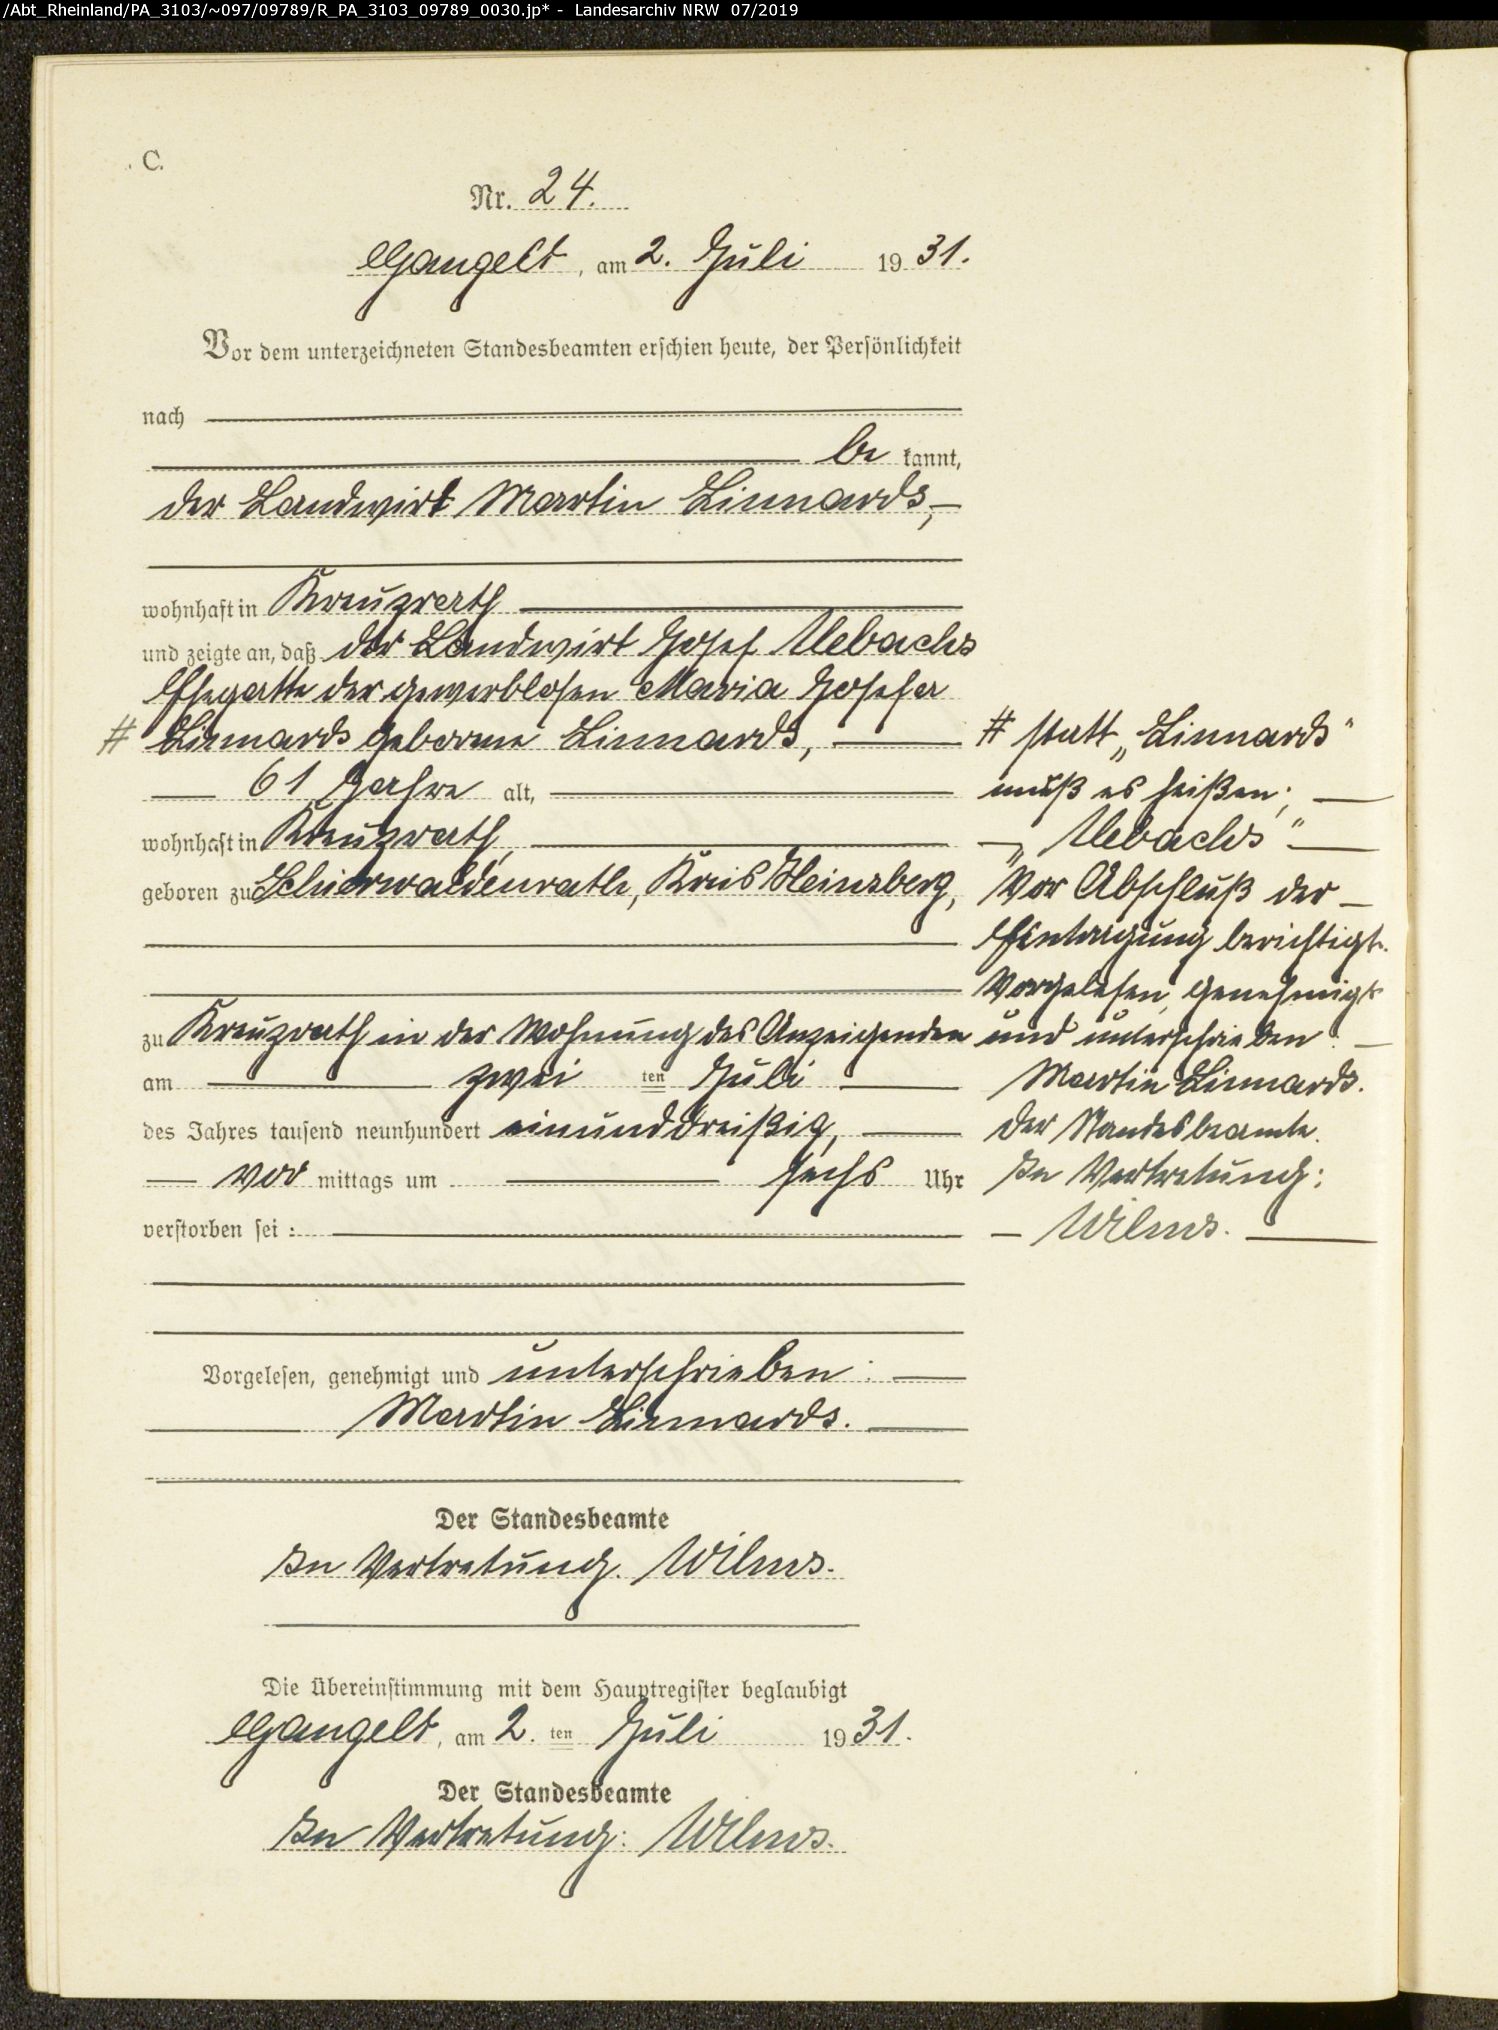 /Abt_Rheinland/PA_3103/~097/09789/R_PA_3103_09789_0030.jp* - Landesarchiv NRW 07/2019
C.
Nr. 24.
Gangelt, am 2. Juli 1931.
Vor dem unterzeichneten Standesbeamten erschien heute, der Persönlichkeit
nach
be kannt,
der Landwirt Martin Linnards,
wohnhaft in Kreuzrath
und zeigte an, daß der Landwirt Josef Uebachs
Ehegatte der gewerblosen Maria Josefa
# Linnards geborene Linnards,
61 Jahre alt,
wohnhaft in Kreuzrath,
geboren zu Schierwaldenrath, Kreis Heinsberg,
zu Kreuzrath in der Wohnung des Anzeigenden
am zwei ten Juli
des Jahres tausend neunhundert einunddreißig,
vor mittags um sechs Uhr
verstorben sei :
Vorgelesen, genehmigt und unterschrieben :
Martin Linnards.
Der Standesbeamte
In Vertretung. Wilms.
Die Übereinstimmung mit dem Hauptregister beglaubigt
Gangelt, am 2. ten Juli 1931.
Der Standesbeamte
In Vertretung: Wilms.
# statt „Linnards"
muß es heißen;
„Uebachs"
Vor Abschluß der
Eintragung berichtigt.
Vorgelesen, genehmigt
und unterschrieben :
Martin Linnards.
Der Standesbeamte.
In Vertretung:
Wilms.